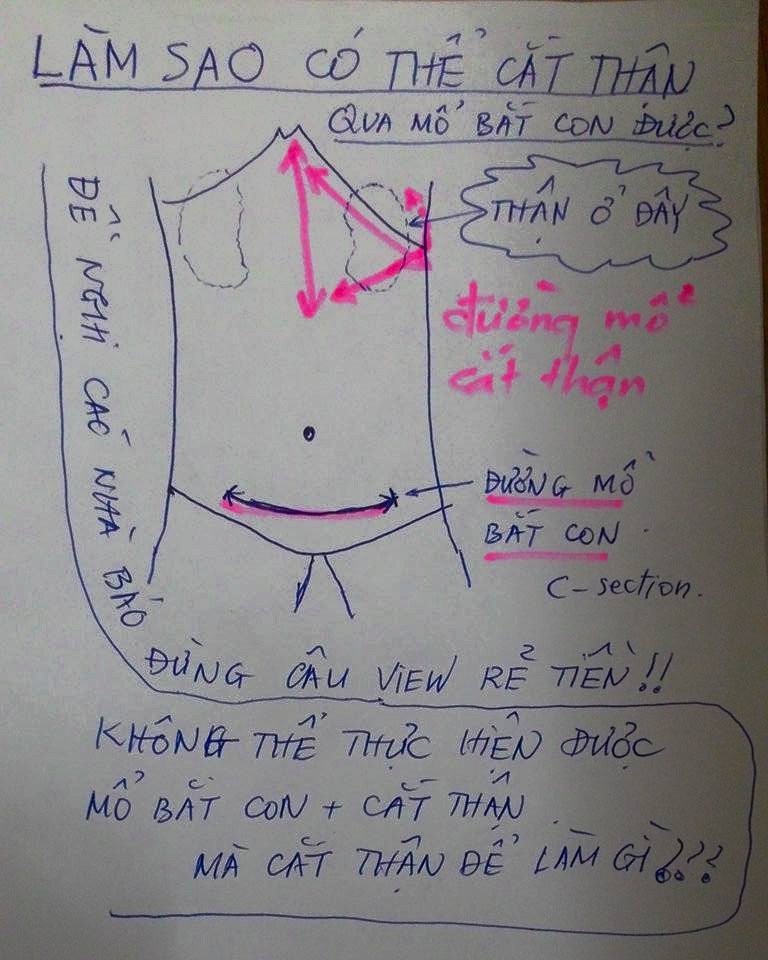 LÀM SAO CÓ THỂ CẮT THẬN
QUA MỔ BẮT CON ĐƯỢC?
THẬN Ở ĐÂY
đường mổ
cắt thận
ĐƯỜNG MỔ
BẮT CON
C-section.
ĐỀ NGHỊ CÁC NHÀ BÁO
ĐỪNG CÂU VIEW RẺ TIỀN!!
KHÔNG THỂ THỰC HIỆN ĐƯỢC
MỔ BẮT CON + CẮT THẬN
MÀ CẮT THẬN ĐỂ LÀM GÌ???